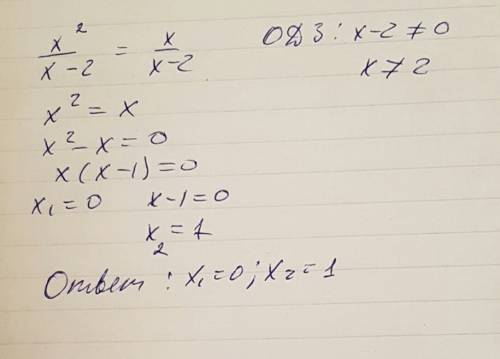 x²/x-2 = x/x-2 ОДЗ: x-2≠0
x≠2
x² = x
x² - x = 0
x(x-1)=0
x₁=0 x-1=0
x₂=1
Ответ: x₁=0; x₂=1